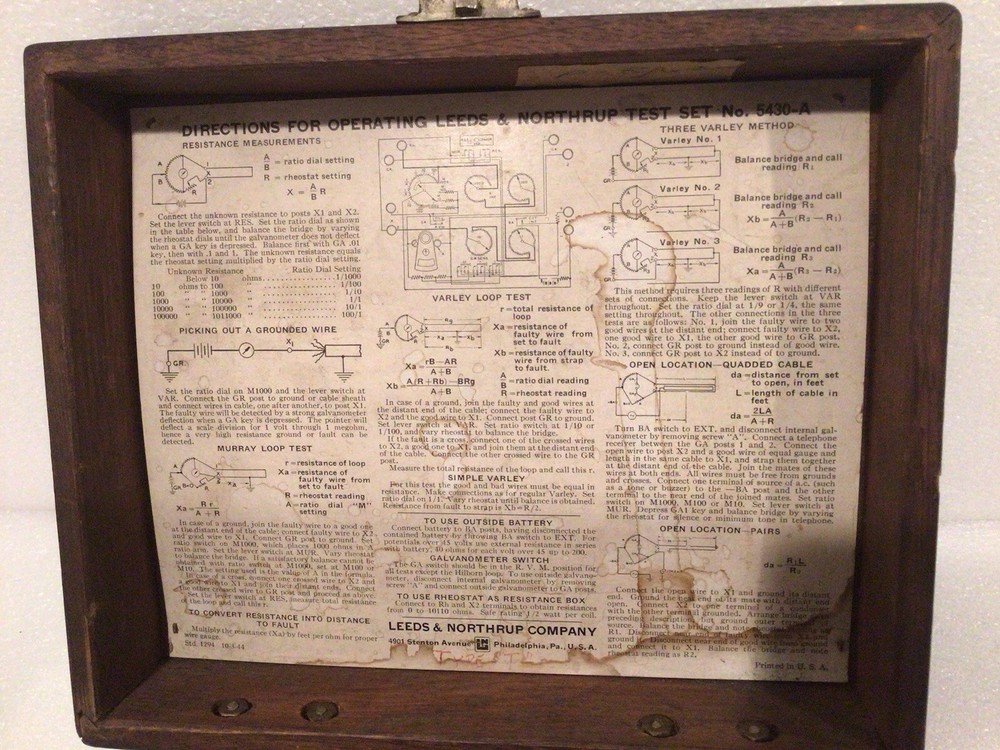 DIRECTIONS FOR OPERATING LEEDS & NORTHRUP TEST SET No. 5430-A
RESISTANCE MEASUREMENTS
A/B = ratio dial setting
R = rheostat setting
X = A/B R
Connect the unknown resistance to posts X1 and X2.
Set the lever switch at RES. Set the ratio dial as shown
in the table below, and balance the bridge by varying
the rheostat dials until the galvanometer does not deflect
when a GA key is depressed. Balance first with GA .01
key, then with .1 and 1. The unknown resistance equals
the rheostat setting multiplied by the ratio dial setting.
Unknown Resistance Ratio Dial Setting
Below 10 ohms 1/1000
10 ohms to 100 " 1/100
100 " 1000 " 1/10
1000 " 10000 " 1/1
10000 " 100000 " 10/1
100000 " 1011000 " 100/1
PICKING OUT A GROUNDED WIRE
X1
GR
Set the ratio dial on M1000 and the lever switch at
VAR. Connect the GR post to ground or cable sheath
and connect wires in cable, one after another, to post X1.
The faulty wire will be detected by a strong galvanometer
deflection when a GA key is depressed. The pointer will
deflect a scale division for 1 volt through 1 megohm,
hence a very high resistance ground or fault can be
detected.
MURRAY LOOP TEST
r = resistance of loop
Xa = resistance of
faulty wire from
set to fault
R = rheostat reading
A = ratio dial "M"
setting
Xa =
A + R
In case of a ground, join the faulty wire to a good one
at the distant end of the cable; connect faulty wire to X2
and good wire to X1. Connect GR post to ground. Set
ratio switch on M1000, which places 1000 ohms in A
ratio arm. Set the lever switch at MUR. Vary rheostat
to balance the bridge. If a satisfactory balance cannot be
obtained with ratio switch at M1000, set at M100 or
M10. The setting used is the value of A in the formula.
In case of a cross, connect one crossed wire to X2 and
a good wire to X1 and join the distant ends. Connect
the other crossed wire to GR post and proceed as above.
Set the lever switch at RES, measure total resistance
of the loop and call this r.
TO CONVERT RESISTANCE INTO DISTANCE
TO FAULT
Multiply the resistance (Xa) by feet per ohm for proper
wire gauge.
Std. 1294
VARLEY LOOP TEST
r = total resistance of
loop
Xa = resistance of
faulty wire from
set to fault
Xb = resistance of faulty
wire from strap
to fault.
A/B = ratio dial reading
R = rheostat reading
Xa = rB—AR / A+B
Xb = A(R+Rb)—BRg / A+B
In case of a ground, join the faulty and good wires at
the distant end of the cable; connect the faulty wire to
X2 and the good wire to X1. Connect post GR to ground.
Set lever switch at VAR. Set ratio switch at 1/10 or
1/100, and vary rheostat to balance the bridge.
If the fault is a cross, connect one of the crossed wires
to X2, a good one to X1, and join them at the distant end
of the cable. Connect the other crossed wire to the GR
post.
Measure the total resistance of the loop and call this r.
SIMPLE VARLEY
For this test the good and bad wires must be equal in
resistance. Make connections as for regular Varley. Set
ratio dial on 1/1. Vary rheostat until balance is obtained.
Resistance from fault to strap is Xb=R/2.
TO USE OUTSIDE BATTERY
Connect battery to BA posts, having disconnected the
contained battery by throwing BA switch to EXT. For
potentials over 45 volts use external resistance in series
with battery, 40 ohms for each volt over 45 up to 200.
GALVANOMETER SWITCH
The GA switch should be in the R. V. M. position for
all tests except the Hilborn loop. To use outside galvano-
meter, disconnect internal galvanometer by removing
screw "A" and connect outside galvanometer to GA posts.
TO USE RHEOSTAT AS RESISTANCE BOX
Connect to Rh and X2 terminals to obtain resistances
from 0 to 10110 ohms. Safe rating 1/2 watt per coil.
LEEDS & NORTHRUP COMPANY
4901 Stenton Avenue LN Philadelphia, Pa., U. S. A.
THREE VARLEY METHOD
Varley No. 1
Balance bridge and call
reading R1
Varley No. 2
Balance bridge and call
reading R2
Xb = A/A+B (R2 — R1)
Varley No. 3
Balance bridge and call
reading R3
Xa = A/A+B (R3 — R2)
This method requires three readings of R with different
sets of connections. Keep the lever switch at VAR
throughout. Set the ratio dial at 1/9 or 1/4, the same
setting throughout. The other connections in the three
tests are as follows: No. 1, join the faulty wire to two
good wires at the distant end; connect faulty wire to X2,
one good wire to X1, the other good wire to GR post.
No. 2, connect GR post to ground instead of good wire.
No. 3, connect GR post to X2 instead of to ground.
OPEN LOCATION—QUADDED CABLE
da = distance from set
to open, in feet
L = length of cable in
feet
da = 2LA / A+R
Turn BA switch to EXT, and disconnect internal gal-
vanometer by removing screw "A". Connect a telephone
receiver between the GA posts 1 and 2. Connect the
open wire to post X2 and a good wire of equal gauge and
length in the same cable to X1, and strap them together
at the distant end of the cable. Join the mates of these
wires at both ends. All wires must be free from grounds
and crosses. Connect one terminal of source of a.c. (such
as a tone or buzzer) to the —BA post and the other
terminal to the near end of the joined mates. Set ratio
switch on M1000, M100 or M10. Set lever switch at
MUR. Depress GA1 key and balance bridge by varying
the rheostat for silence or minimum tone in telephone.
OPEN LOCATION—PAIRS
da = R1L / R2
Connect the open wire to X1 and ground its distant
end. Ground the
open. Connect X2 to one terminal of a condenser
with the other terminal grounded. Arrange
preceding description, but ground outer
source. Balance the bridge and
R1. Disconnect
and connect it to X1. Balance the bridge and
rheostat reading as R2.
Printed in U. S. A.